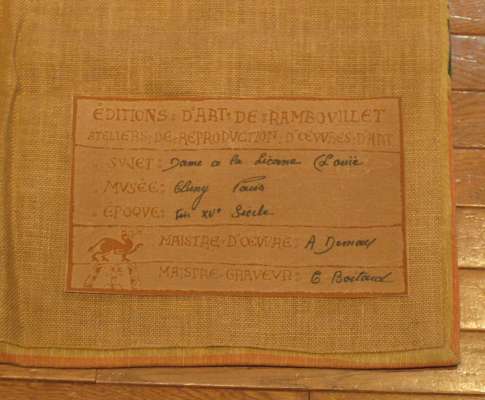 ÉDITIONS D'ART DE RAMBOUILLET
ATELIERS DE REPRODUCTION D'ŒUVRES D'ART
SUJET: Dame a la Licorne (Louïe
MUSÉE: Cluny Paris
ÉPOQUE: fin XVe Siecle
MAISTRE D'ŒUVRE: A
MAISTRE GRAVEUR: